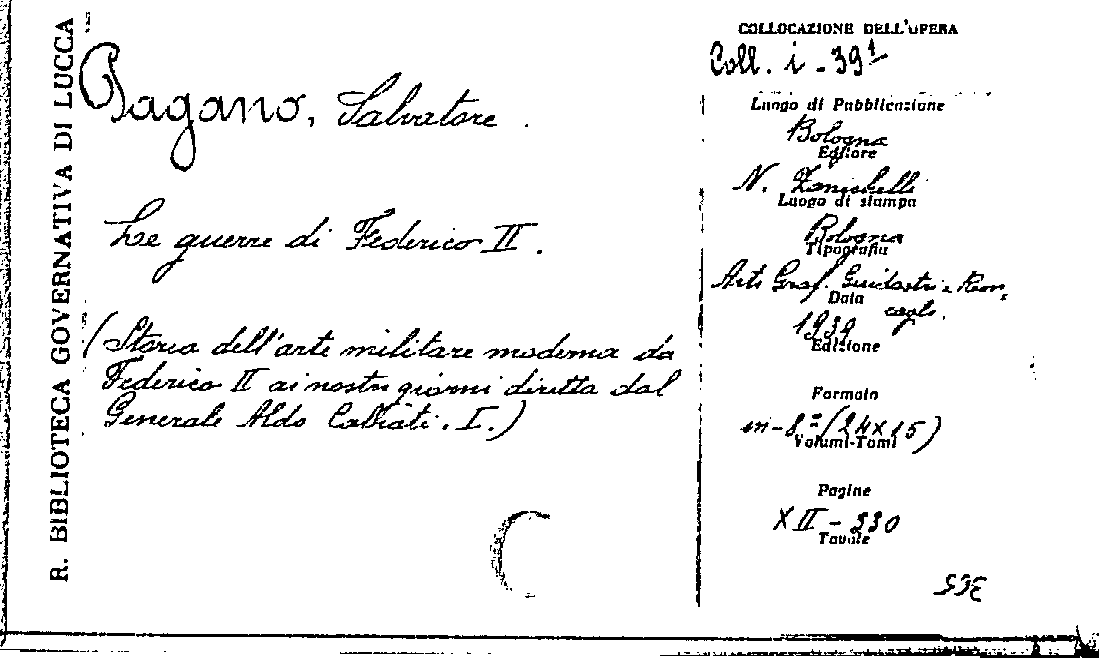 R. BIBLIOTECA GOVERNATIVA DI LUCCA
Pagano, Salvatore.
Le guerre di Federico II.
(Storia dell'arte militare moderna da
Federico II ai nostri giorni diretta dal
Generale Aldo Cabiati. I.)
COLLOCAZIONE DELL'OPERA
Coll. i - 39¹
Luogo di Pubblicazione
Bologna
Editore
N. Zanichelli
Luogo di stampa
Bologna
Tipografia
Arti Graf.
Data
1939
Edizione
Formato
in-8º (24x15)
Volumi-Tomi
Pagine
XII - 330
Tavole